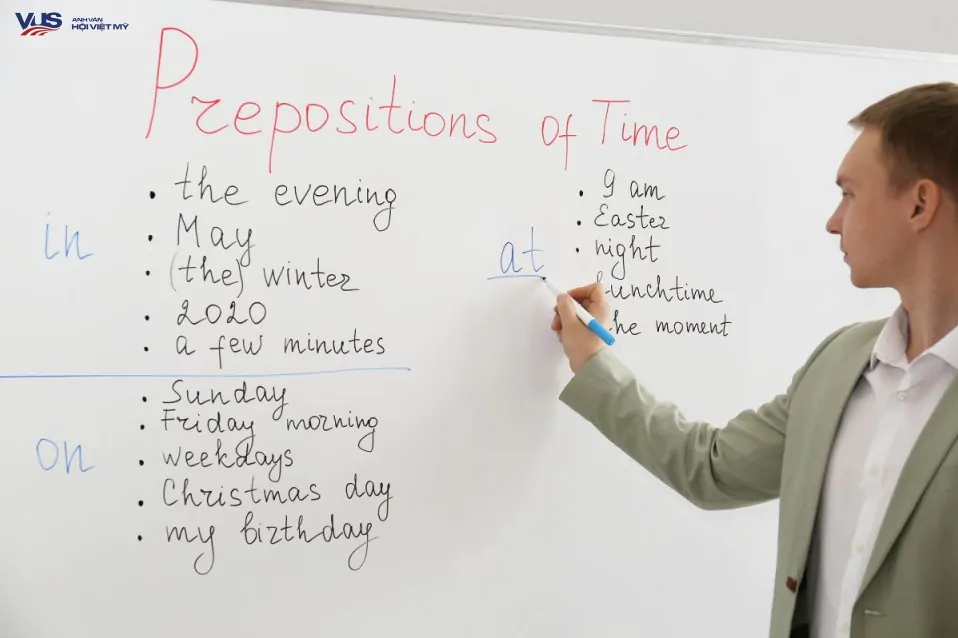 VUS
ANH VĂN
HỘI VIỆT MỸ
Prepositions of Time
in
• the evening
• May
• (the) winter
• 2020
• a few minutes
on
• Sunday
• Friday morning
• weekdays
• Christmas day
• my birthday
at
• 9 am
• Easter
• night
lunchtime
the moment